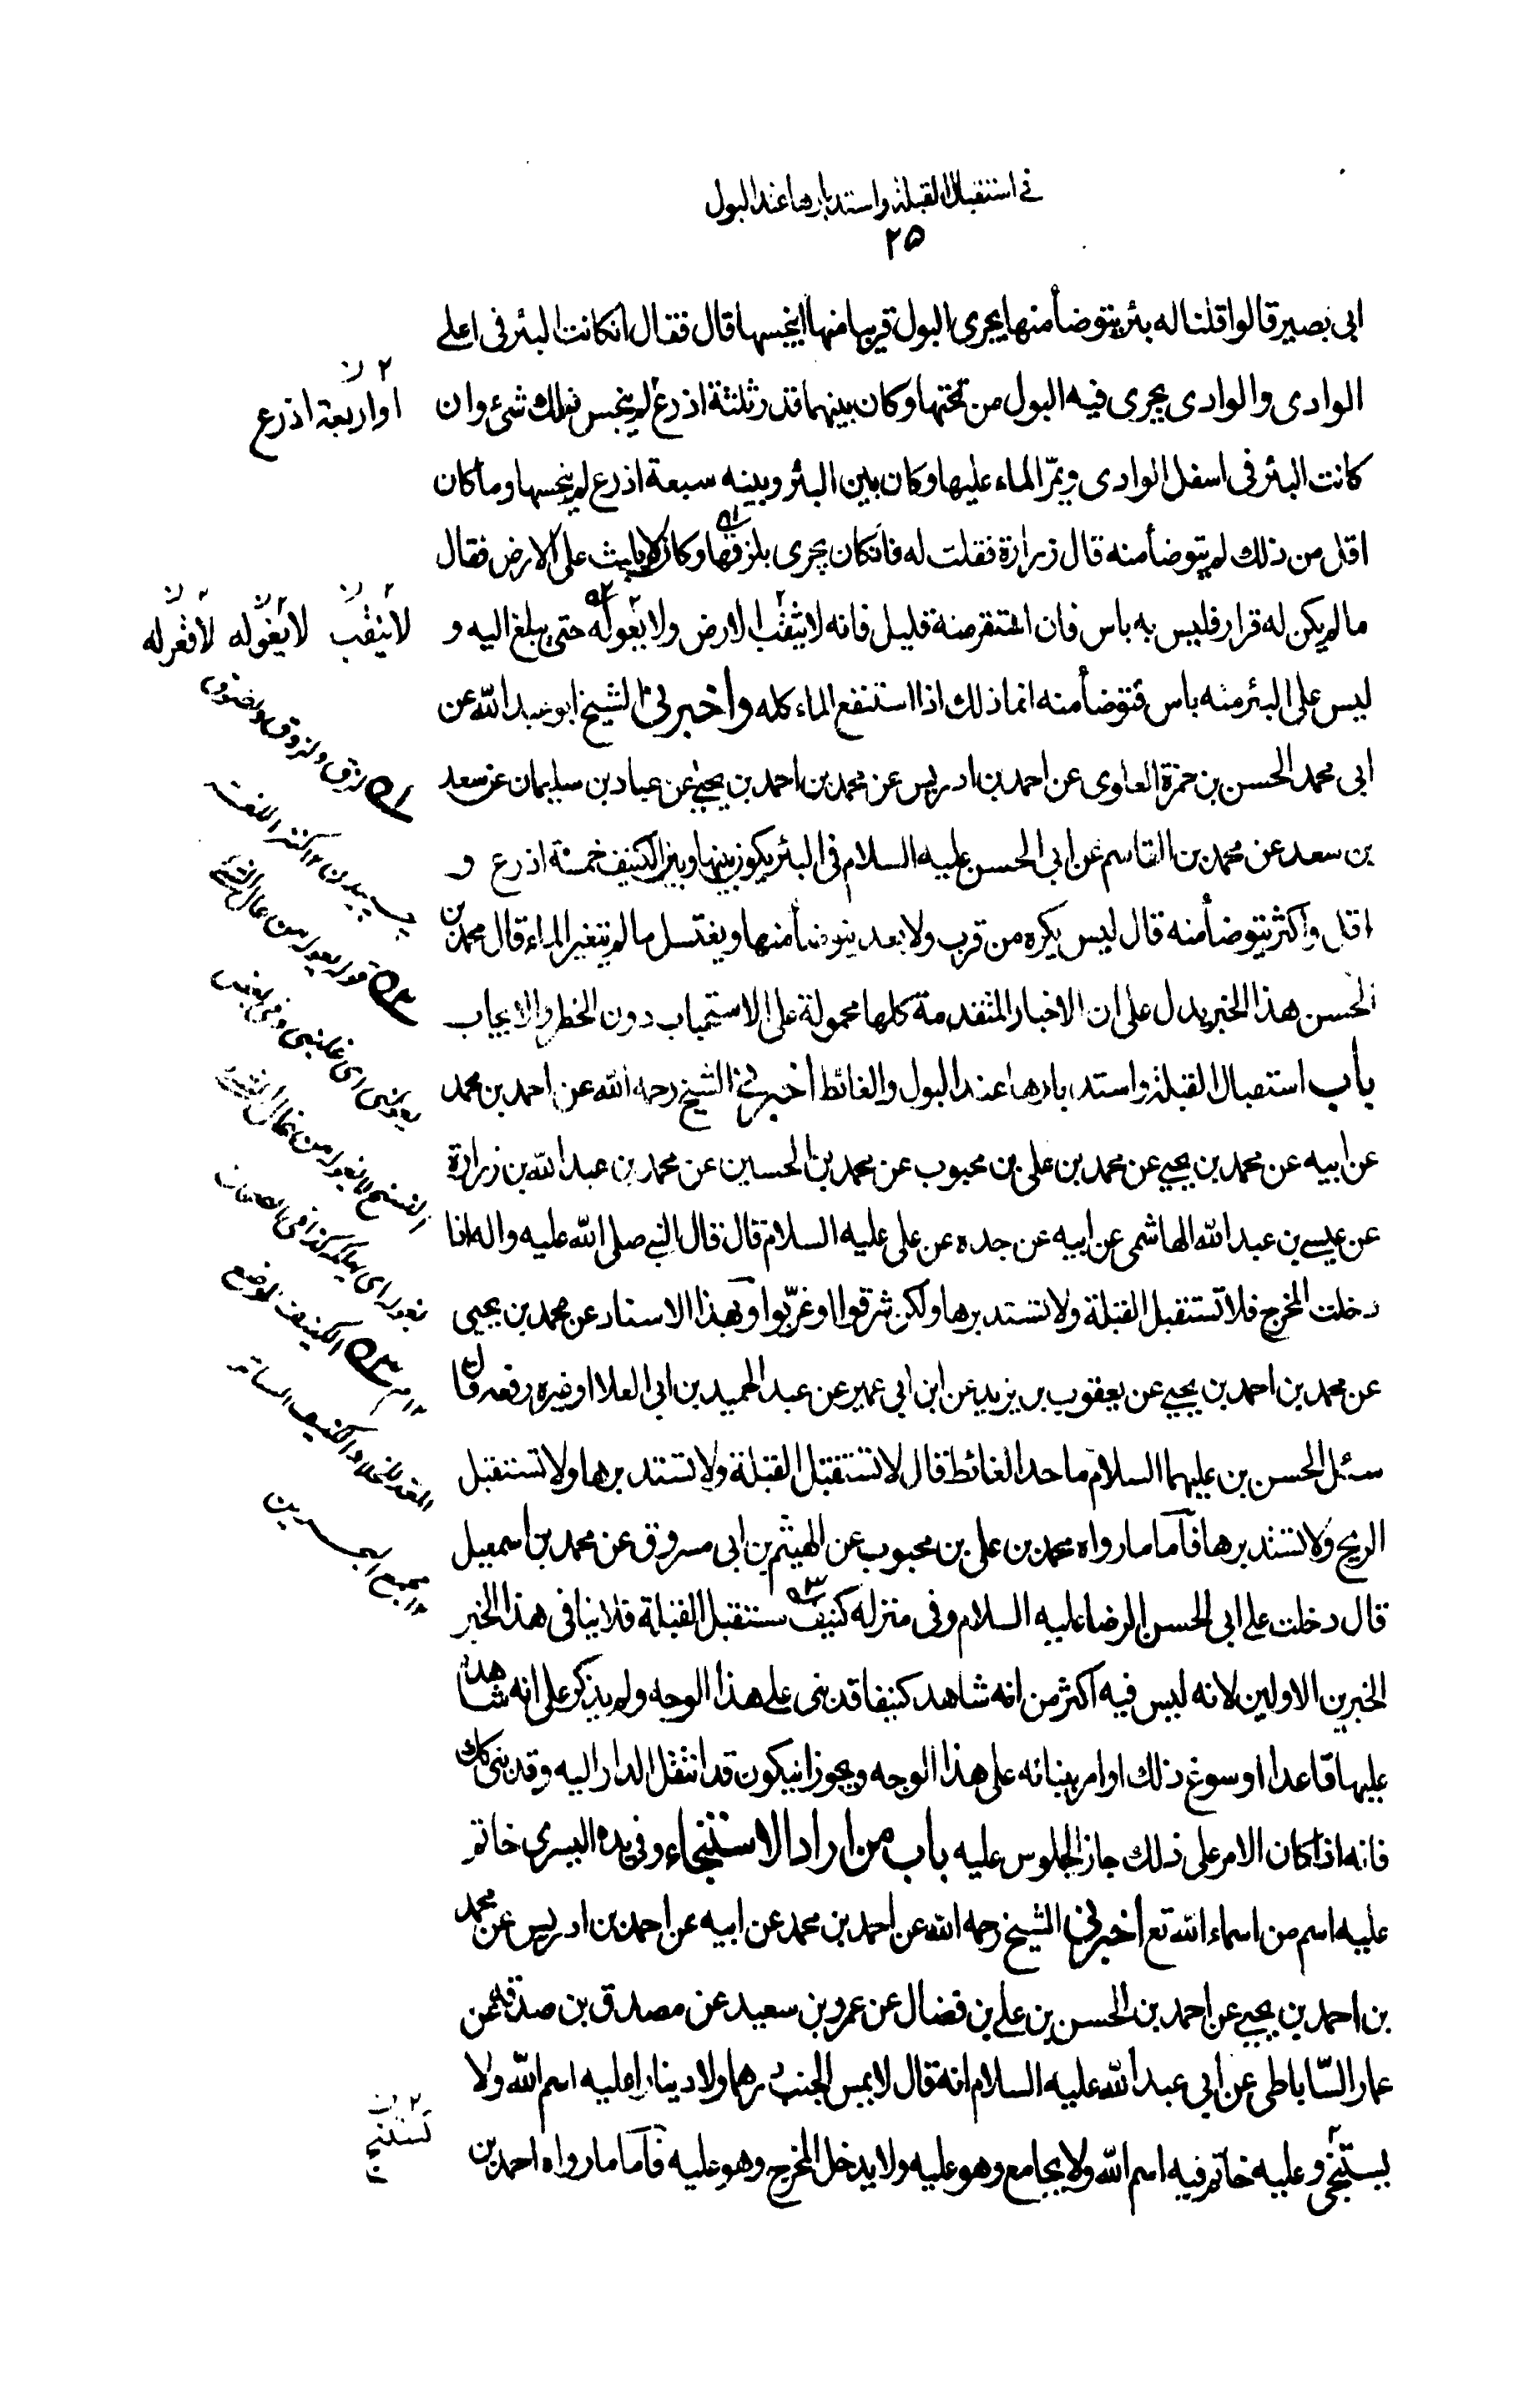 في استقبال القبلة واستدبارها عند البول
٢٥
ابى بصير قالوا قلنا له بئر يتوضأ منها يجرى البول قريبا منها اينجسها قال فقال انكانت البئر فى اعلى
الوادى والوادى يجرى فيه البول من تحتها وكان بينهما قدر ثلثة اذرع لم ينجس ذلك شئ وان
او اربعة اذرع
كانت البئر فى اسفل الوادى ويمرّ الماء عليها وكان بين البئر وبينه سبعة اذرع لم ينجسها وما كان
اقل من ذلك لم يتوضأ منه قال زرارة فقلت له فانكان يجرى بلزقها وكان لا يلبث على الارض فقال
ما لم يكن له قرار فليس به باس فان استقر منه قليل فانه لا يثقب الارض ولا يغوله حتى يبلغ اليه و
لا ينقب لا يغوله لا قعر له
ليس على البئر منه باس فتوضأ منه انما ذلك اذا استنقع الماء كله واخبرنى الشيخ ابو عبد الله عن
ابى محمد الحسن بن حمزة العلوى عن احمد بن ادريس عن محمد بن احمد بن يحيى عن عباد بن سليمان عن سعد
بن سعد عن محمد بن القاسم عن ابى الحسن عليه السلام فى البئر يكون بينها وبين الكنيف خمسة اذرع و
اقل واكثر يتوضأ منه قال ليس يكره من قرب ولا بعد يتوضأ منها ويغتسل ما لم يتغير الماء قال محمد بن
الحسن هذا الخبر يدل على ان الاخبار المتقدمة كلها محمولة على الاستحباب دون الحظر والايجاب
باب استقبال القبلة واستدبارها عند البول والغائط اخبرنى الشيخ رحمه الله عن احمد بن محمد
عن ابيه عن محمد بن يحيى عن محمد بن على بن محبوب عن محمد بن الحسين عن محمد بن عبد الله بن زرارة
عن عيسى بن عبد الله الهاشمى عن ابيه عن جده عن على عليه السلام قال قال النبي صلى الله عليه واله اذا
دخلت المخرج فلا تستقبل القبلة ولا تستدبرها ولكن شرقوا او غرّبوا وبهذا الاسناد عن محمد بن يحيى
عن محمد بن احمد بن يحيى عن يعقوب بن يزيد عن ابن ابى عمير عن عبد الحميد بن ابى العلا او غيره رفعه قال
سئل الحسن بن عليهما السلام ما حد الغائط قال لا تستقبل القبلة ولا تستدبرها ولا تستقبل
الريح ولا تستدبرها فأما ما رواه محمد بن على بن محبوب عن الهيثم بن ابى مسروق عن محمد بن اسمعيل
قال دخلت على ابى الحسن الرضا عليه السلام وفى منزله كنيف مستقبل القبلة فلا ينافى هذا الخبر
الخبرين الاولين لانه ليس فيه اكثر من انه شاهد كنيفا قد بنى على هذا الوجه ولم يذكر على انه شاهد
عليها قاعدا او سوغ ذلك او امر ببنائه على هذا الوجه ويجوز ان يكون قد انتقل الدار اليه وقد بنى كك
فانه اذا كان الامر على ذلك جاز الجلوس عليه باب من اراد الاستنجاء وفى يده اليسرى خاتم
عليه اسم من اسماء الله تع اخبرنى الشيخ رحمه الله عن احمد بن محمد عن ابيه عن احمد بن ادريس عن محمد
بن احمد بن يحيى عن احمد بن الحسن بن على بن فضال عن عمرو بن سعيد عن مصدق بن صدقة عن
عمار السّاباطى عن ابى عبد الله عليه السلام انه قال لا يمس الجنب درهما ولا دينارا عليه اسم الله ولا
يستنجى وعليه خاتم فيه اسم الله ولا يجامع وهو عليه ولا يدخل المخرج وهو عليه فأما ما رواه احمد بن